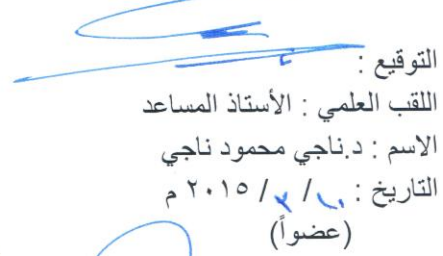 التوقيع :
اللقب العلمي : الأستاذ المساعد
الاسم : د.ناجي محمود ناجي
التاريخ : / / ٢٠١٥ م
(عضواً)